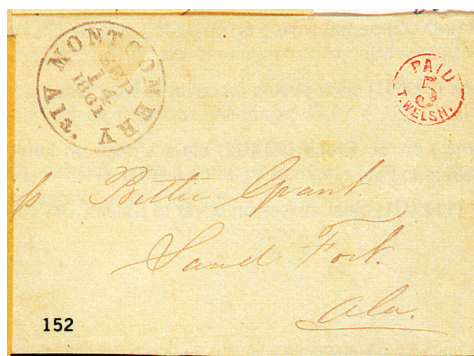 MONTGOMERY Ala.
SEP
14
1861
PAID
5
T. WELSH.
Bettie Grant
Sand Fort
Ala.
152